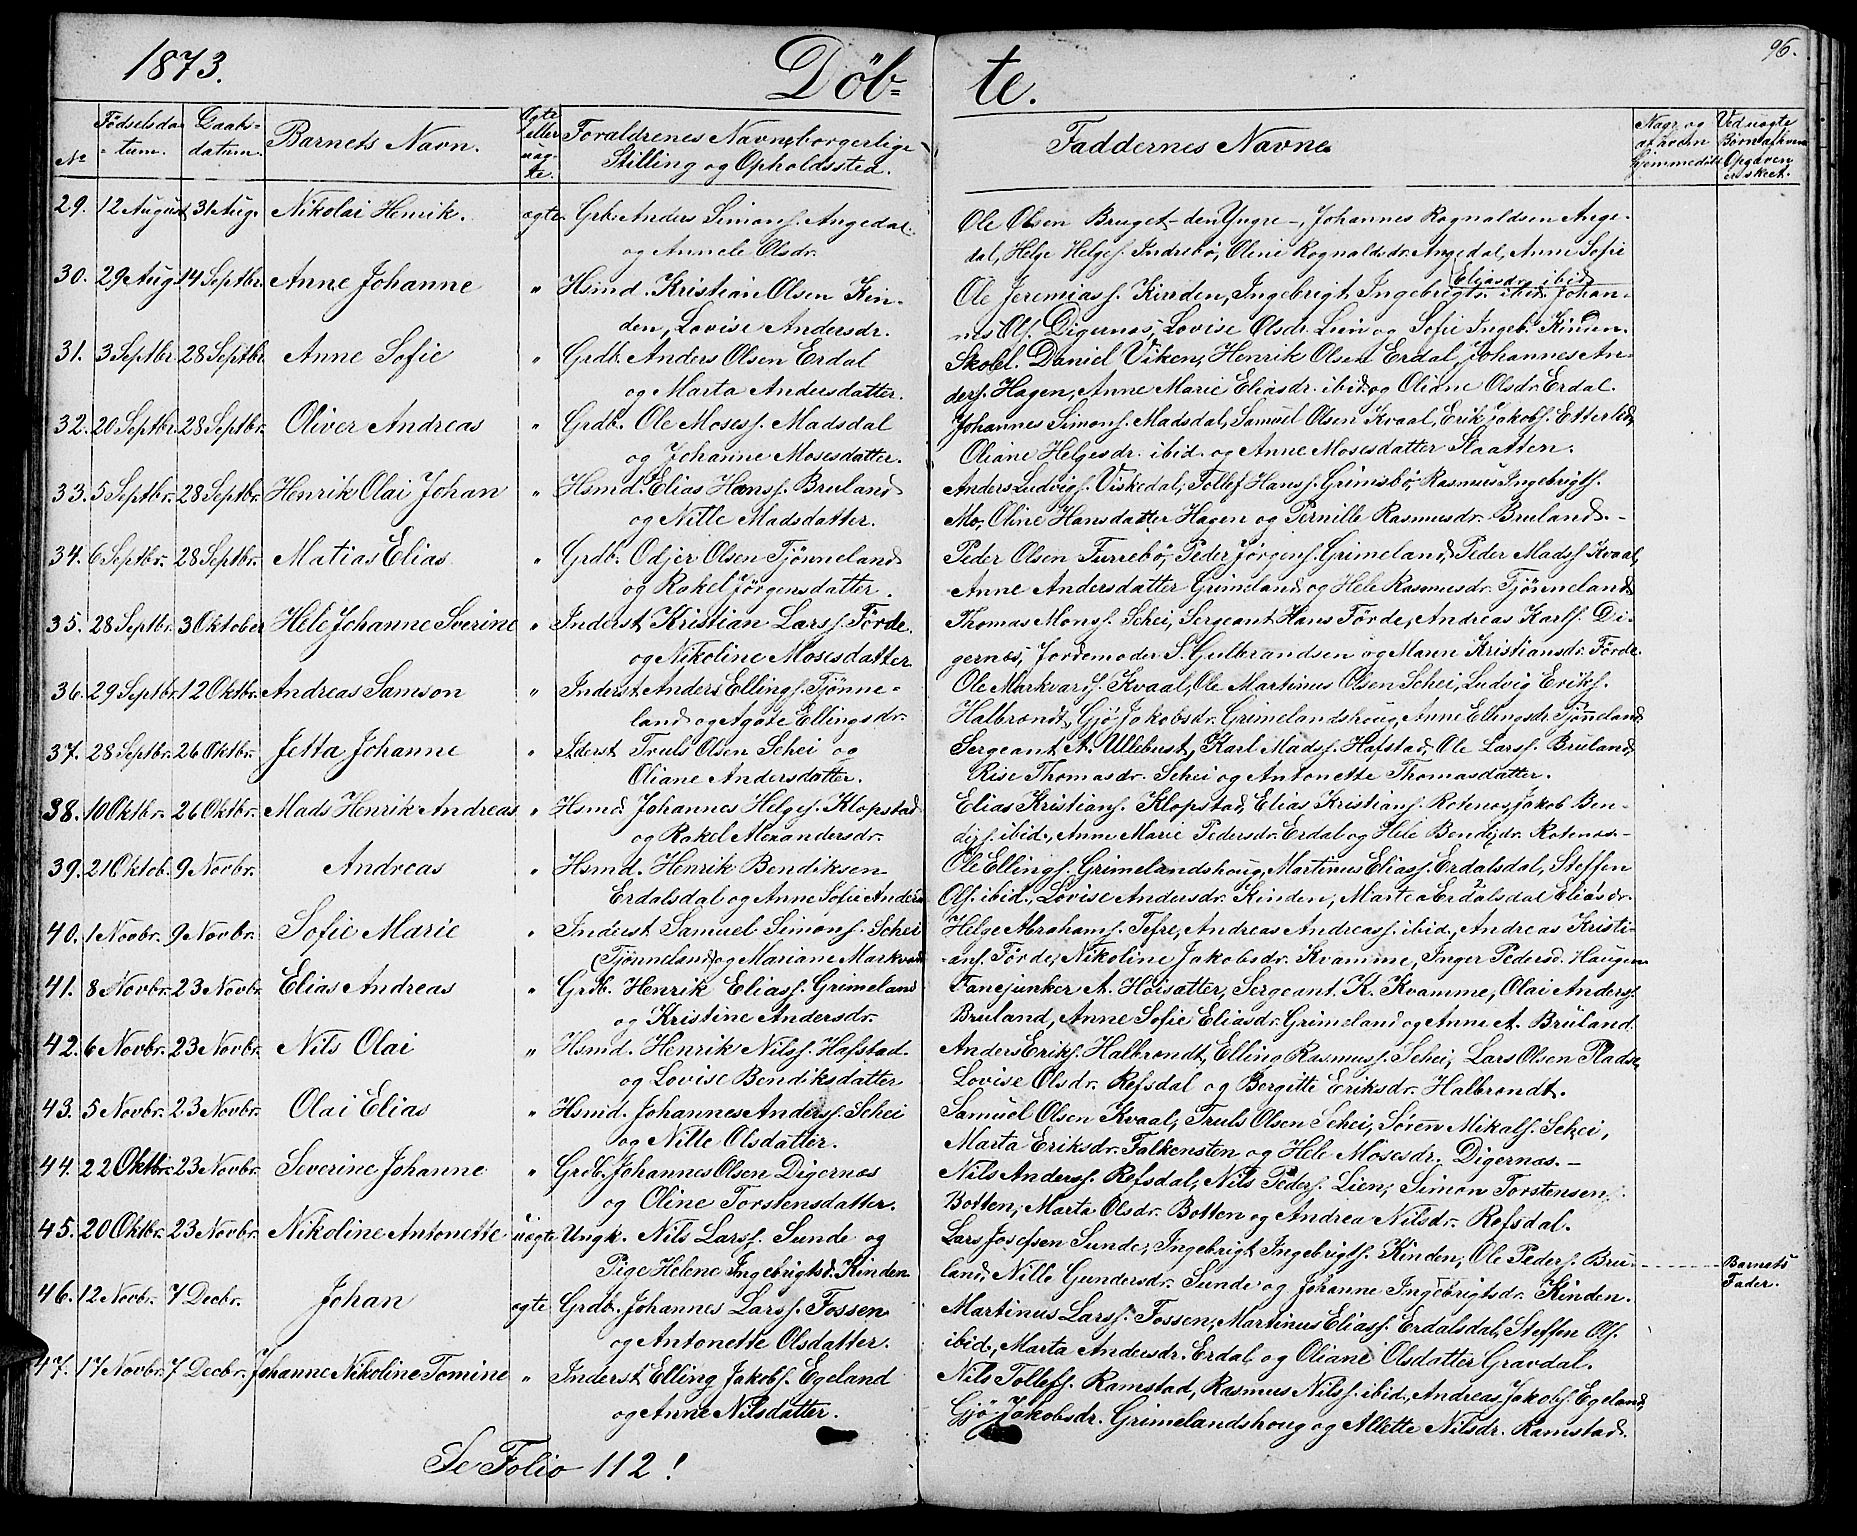 1873.
Döb=
te.
96.
No
Fødselsda-
tum.
Daabs-
datum.
Barnets Navn.
Ægte
eller
uæg-
te.
Forældrenes Navne, borgerlige
Stilling og Opholdssted.
Faddernes Navne
Ved uægte
29. 12 August 31 Aug. Nikolai Henrik. ægte. Grb. Anders Simons. Angedal
og Annele Olsdr.
Ole Olsen Bruget - den Yngre -, Johannes Rognaldsen Ange-
dal, Helge Helges. Indrebö, Oline Rognaldsdr. Angedal, Anne Sofie
Eliasdr. ibid
30. 29 Aug. 14 Septbr. Anne Johanne " Hsmd. Kristian Olsen Kin-
den, Lovise Andersdr.
Ole Jeremiass. Kinden, Ingebrigt Ingebrigts. ibid. Johan-
nes Ols. Digernæs, Lovise Olsdr. Lien og Sofie Ingeb. Kinden.
31. 3 Septbr. 28 Septbr. Anne Sofie " Grdb. Anders Olsen Erdal
og Marta Andersdatter.
Skobl. Daniel Viken, Henrik Olsen Erdal, Johannes An-
ders. Hagen, Anne Marie Eliasdr. ibid. og Oliane Olsdr. Erdal.
32. 20 Septbr. 28 Septbr. Oliver Andreas " Grdb. Ole Moses. Madsdal
og Johanne Mosesdatter.
Johannes Simons. Madsdal, Samuel Olsen Kvaal, Erik Jakobs. Etterlid,
Oliane Helgesdr. ibid. og Anne Mosesdatter Slaatten.
33. 5 Septbr. 28 Septbr. Henrik Olai Johan " Hsmd. Elias Hans. Bruland
og Nille Madsdatter.
Anders Ludvigs. Viskedal, Tollef Hans. Grimsbö, Rasmus Ingebrigts.
Mo, Oline Hansdatter Hagen og Pernille Rasmusdr. Bruland. -
34. 6 Septbr. 28 Septbr. Matias Elias " Grdb. Odjer Olsen Tjönneland
og Rakel Jörgensdatter.
Peder Olsen Furrebö, Peder Jörgens. Grimeland, Peder Mads. Kvaal,
Anne Andersdatter Grimeland og Hele Rasmusdr. Tjönneland
35. 28 Septbr. 3 Oktober Hele Johanne Sverine " Inderst Kristian Lars. Förde.
og Nikoline Mosesdatter
Thomas Mons. Schei, Sergeant Hans Förde, Andreas Karls. Di-
gernæs, Jordemoder S. Gulbrandsen og Maren Kristiansdr. Förde.
36. 29 Septbr. 12 Oktbr. Andreas Samson " Inderst Anders Ellings. Tjönne-
land og Agate Ellingsdr.
Ole Markvards. Kvaal, Ole Martinus Olsen Schei, Ludvig Eriks.
Halbrændt, Gjö Jakobsdr. Grimelandshoug, Anne Ellingsdr. Tjönneland
37. 28 Septbr. 26 Oktbr. Jetta Johanne " Iderst Truls Olsen Schei og
Oliane Andersdatter.
Sergeant A. Ullebust, Karl Mads. Hafstad, Ole Lars. Bruland,
Rise Thomasdr. Schei og Antonette Thomasdatter.
38. 10 Oktbr. 26 Oktbr. Mads Henrik Andreas " Hsmd. Johannes Helges. Klopstad
og Rakel Alexandersdr.
Elias Kristians. Klopstad, Elias Kristians. Rotenæs, Jakob Ben-
djs. ibid., Anne Marie Pedersdr. Erdal og Hele Bendjsdr. Rotenæs. -
39. 21 Oktob. 9 Novbr. Andreas " Hsmd. Henrik Bendiksen
Erdalsdal og Anne Sofie Andersd.
Ole Ellings. Grimelandshoug, Martinus Elias. Erdalsdal, Steffen
Ols. ibid., Lovise Andersdr. Kinden, Marte Erdalsdal Eliasdr.
40. 1 Novbr. 9 Novbr. Sofie Marie " Inderst Samuel Simons. Schei
(Tjönneland) og Mariane Markvards
Helge Abrahams. Tefre, Andreas Andreass. ibid., Andreas Kristi-
ans. Förde, Nikoline Jakobsdr. Kvamme, Inger Pedersd. Haugen
41. 8 Novbr. 23 Novbr. Elias Andreas " Grdb. Henrik Elias. Grimeland
og Kristine Andersdr.
Fanejunker A. Höisæter, Sergeant K. Kvamme, Olai Anders.
Bruland, Anne Sofie Eliasdr. Grimeland og Anne A. Bruland.
42. 6 Novbr. 23 Novbr. Nils Olai " Hsmd. Henrik Nils. Hafstad.
og Lovise Bendiksdatter
Anders Eriks. Halbrændt, Elling Rasmus. Schei, Lars Olsen Pladse,
Lovise Olsdr. Refsdal og Bergitte Eriksdr. Halbrændt.
43. 5 Novbr. 23 Novbr. Olai Elias " Hsmd. Johannes Anders. Schei
og Nille Olsdatter.
Samuel Olsen Kvaal, Truls Olsen Schei, Sören Mikals. Schei,
Marta Eriksdr. Falkensten og Hele Mosesdr. Digernæs. -
44. 22 Oktbr. 23 Novbr. Severine Johanne " Grdb. Johannes Olsen Digernæs
og Oline Torstensdatter.
Nils Anders. Refsdal, Nils Peders. Lien, Simon Torstensen
Botten, Marta Olsdr. Botten og Andrea Nilsdr. Refsdal.
45. 20 Oktbr. 23 Novbr. Nikoline Antonette uægte Ungk. Nils Lars. Sunde og
Pige Helene Ingebrigtsd. Kinden
Lars Josefsen Sunde, Ingebrigt Ingebrigts. Kinden, Ole Peders. Bru-
land, Nille Gundersdr. Sunde og Johanne Ingebrigtsdr. Kinden.
Barnets
Fader.
46. 12 Novbr. 7 Decbr. Johan ægte Grdb. Johannes Lars. Fossen
og Antonette Olsdatter.
Martinus Lars. Fossen, Martinus Elias. Erdalsdal, Steffen Ols.
ibid., Marta Andersdr. Erdal og Oliane Olsdatter Gravdal.
47. 17 Novbr. 7 Decbr. Johanne Nikoline Tomine " Inderst Elling Jakobs. Egeland
og Anne Nilsdatter.
Nils Tollefs. Ramstad, Rasmus Nils. ibid, Andreas Jakobs. Egeland,
Gjö Jakobsdr. Grimelandshoug og Alette Nilsdr. Ramstad.
Se Folio 112!